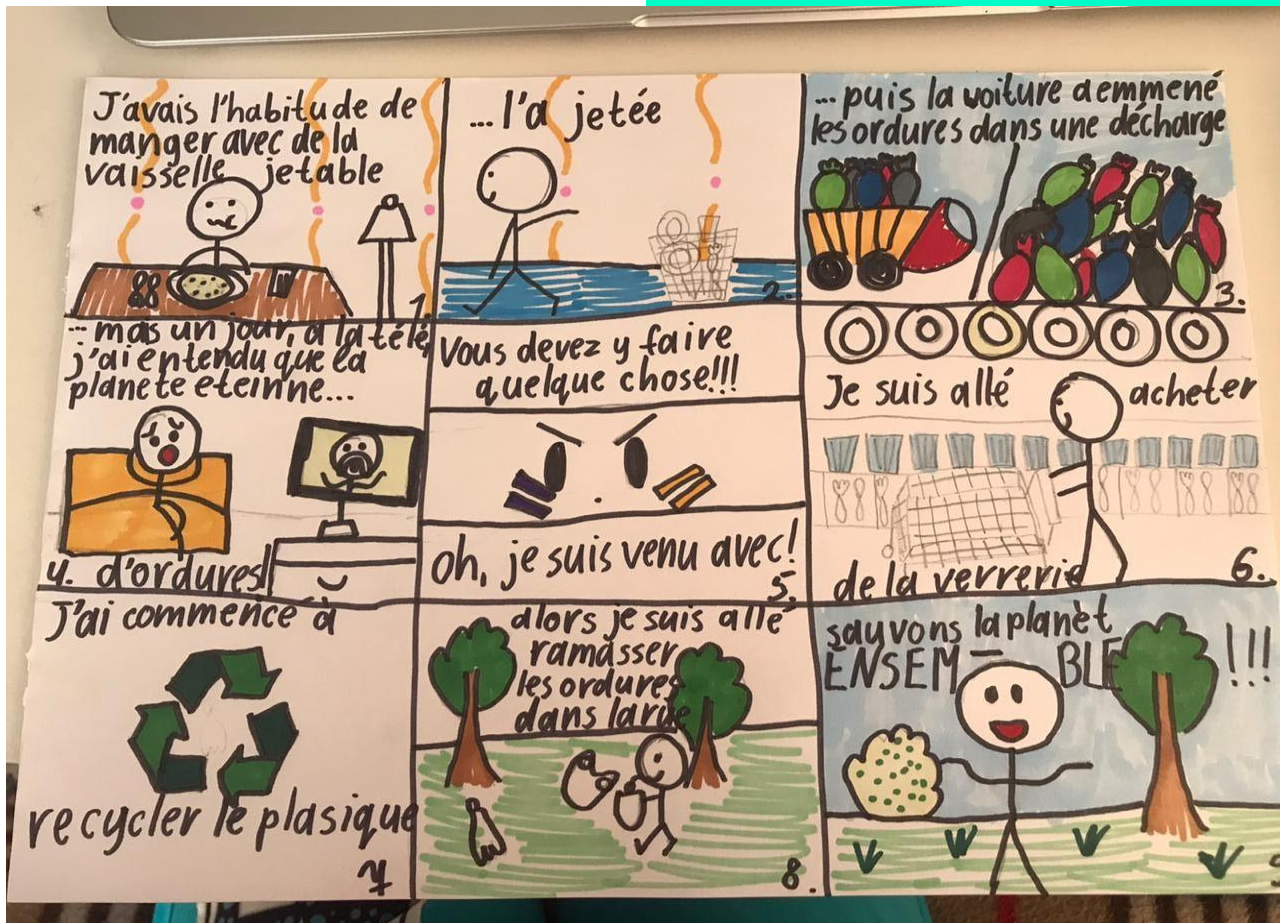 J'avais l'habitude de
manger avec de la
vaisselle jetable
1.
...l'a jetée
2.
...puis la voiture a emmené
les ordures dans une décharge
3.
...mas un jour, a la télé,
j'ai entendu que la
planete eteinne...
4. d'ordures!
Vous devez y faire
quelque chose!!!
oh, je suis venu avec!
5.
Je suis allé acheter
de la verrerie
6.
J'ai commence à
recycler le plasique
7
alors je suis allé
ramasser
les ordures
dans larue
8.
sauvons la planèt
ENSEM-BLE!!!